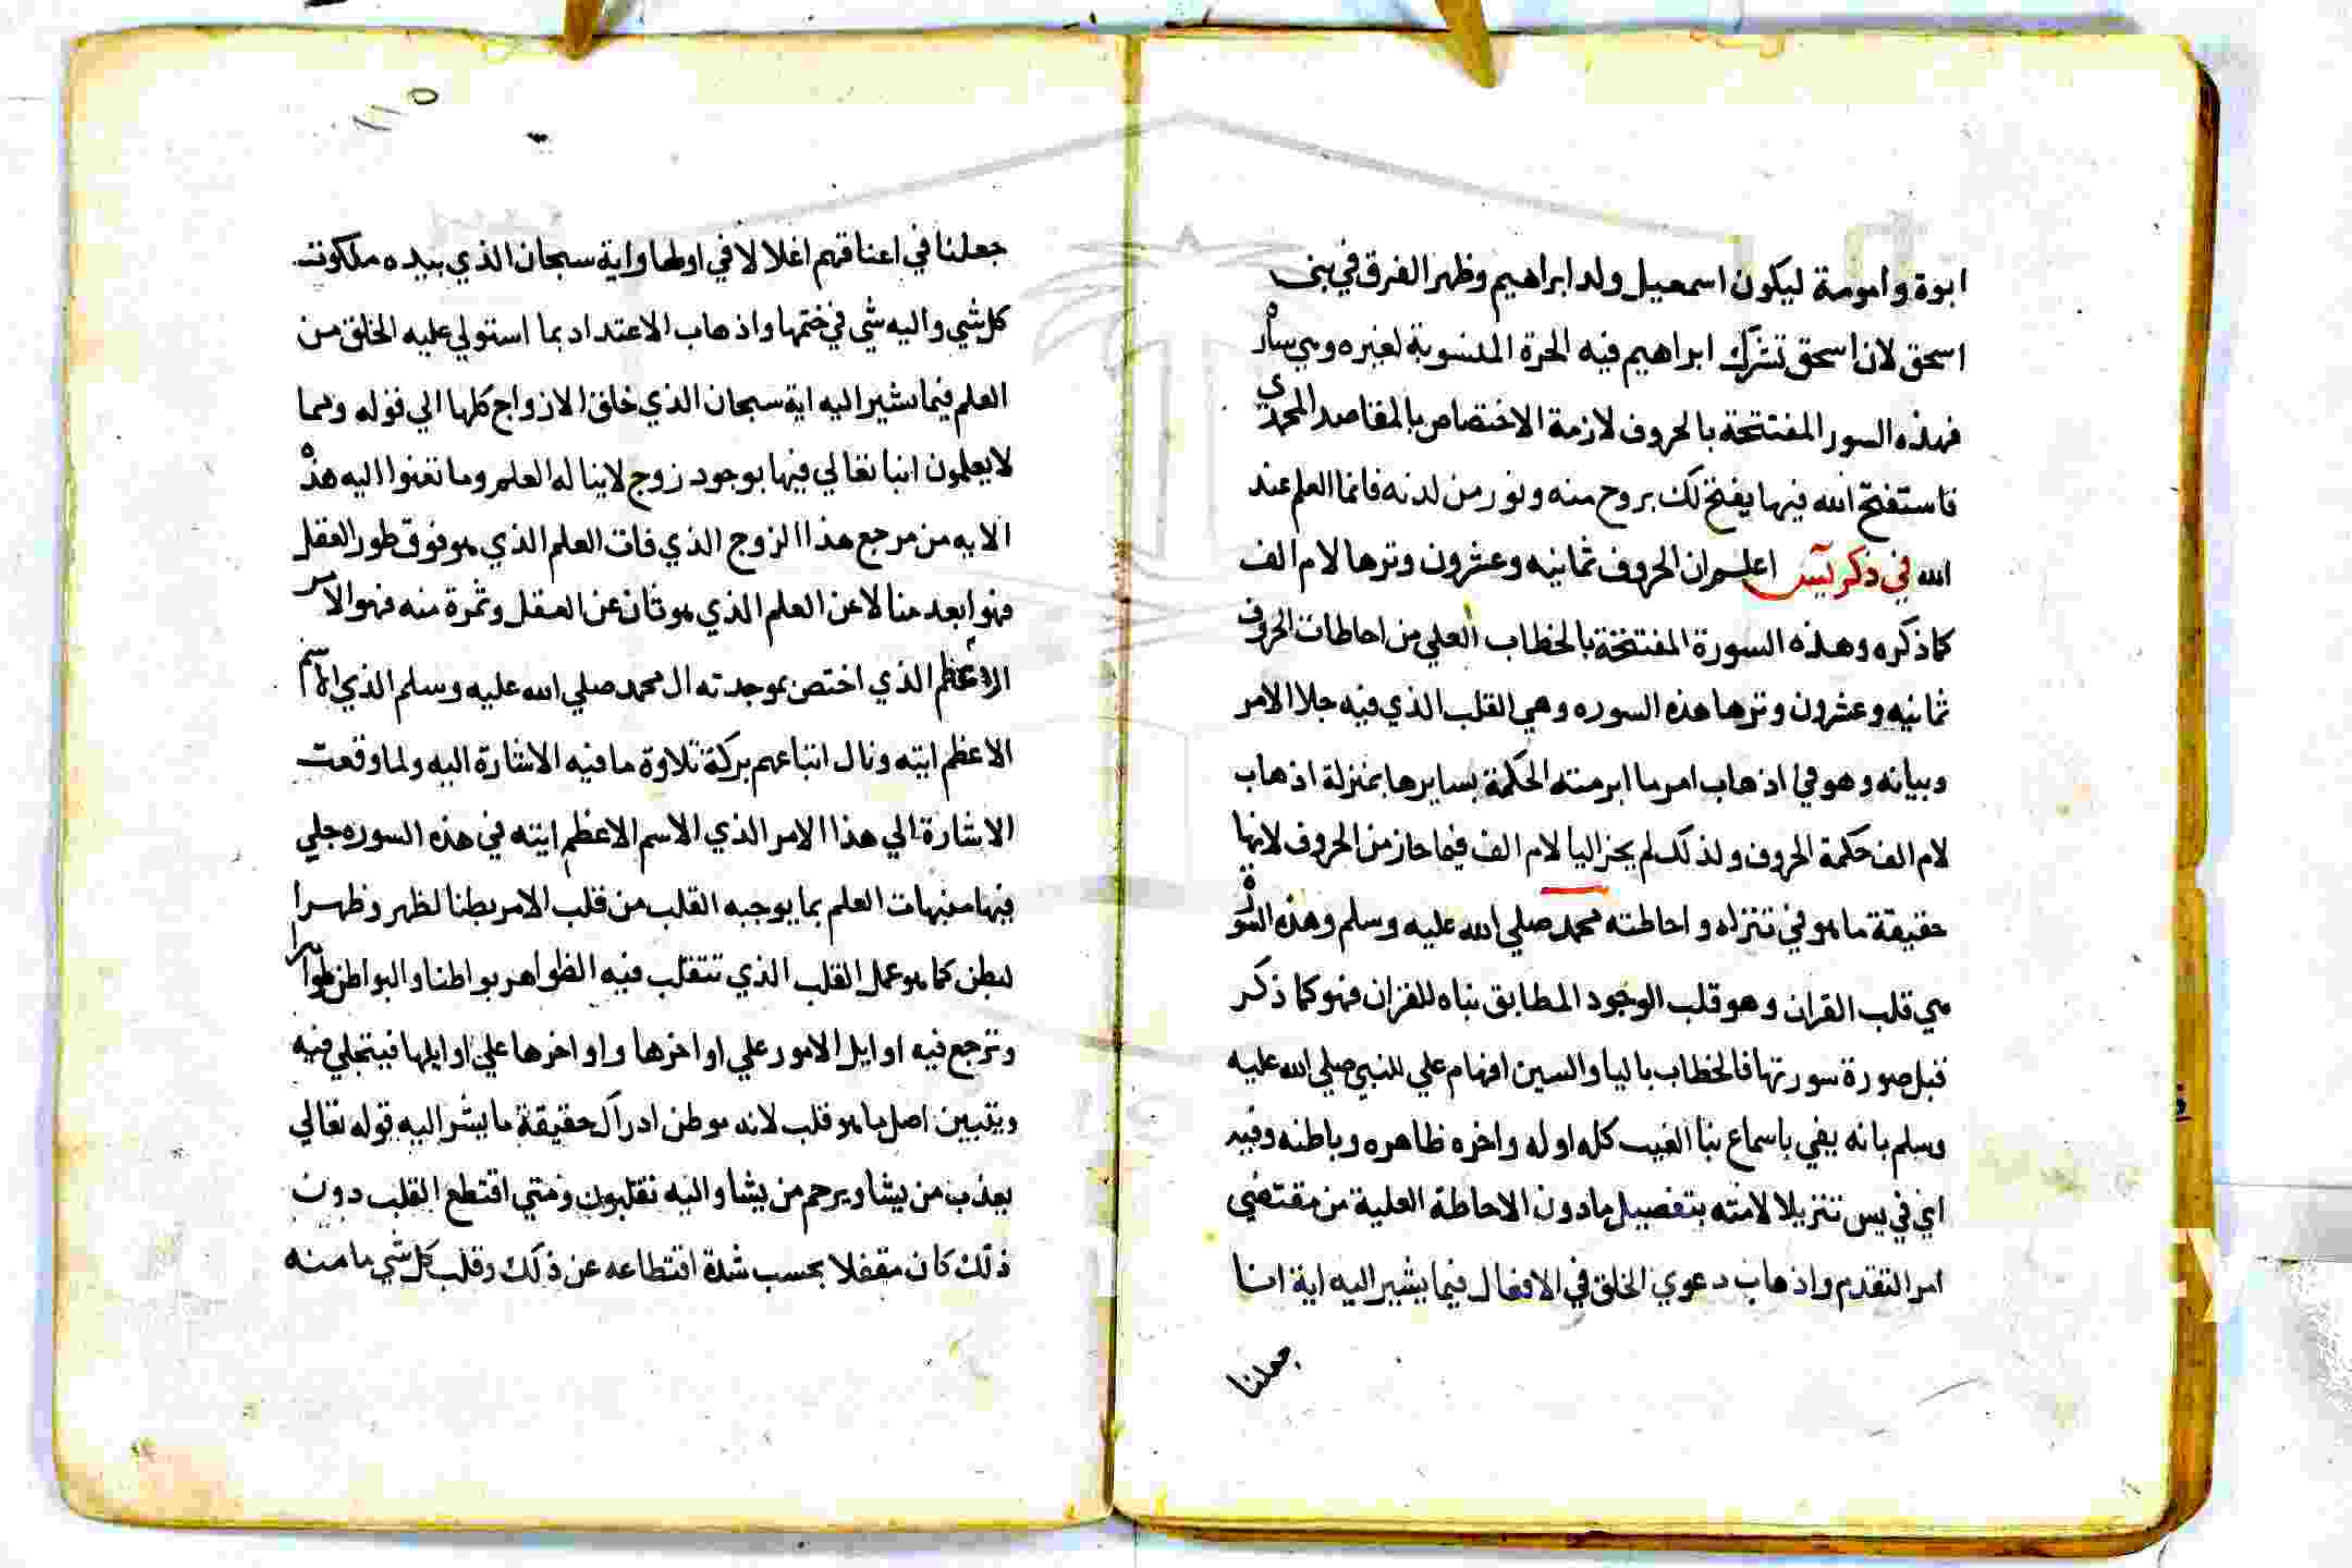 ابوة وامومة ليكون اسمعيل ولد ابراهيم وظهر الفرق في بني
اسحق لان اسحق تشرك ابراهيم فيه الحرة المنسوبة لغيره وهي ساره
فهذه السور المفتتحة بالحروف لازمة الاختصاص بالمقاصد المحمدي
فاستفتح الله فيها يفتح لك بروح منه ونور من لدنه فانما العلم عند
الله في ذكر يس اعلم ان الحروف ثمانيه وعشرون وترها لام الف
كما ذكره وهذه السورة المفتتحة بالخطاب العلي من احاطات الحروف
ثمانيه وعشرون وترها هذه السوره وهي القلب الذي فيه جلا الامر
وبيانه وهو في اذهاب امر ما ابرمته الحكمة بسايرها بمنزلة اذهاب
لام الف حكمة الحروف ولذلك لم يجز اليا لام الف فيما حاز من الحروف لانها
حقيقة ما هو في تنزله واحاطته محمد صلي الله عليه وسلم وهذه السورة
هي قلب القران وهو قلب الوجود المطابق بناه للقران فهو كما ذكر
قبل صورة سورتها فالخطاب باليا والسين افهام علي للنبي صلي الله عليه
وسلم بانه يفي باسماع نبا الغيب كله اوله واخره ظاهره وباطنه وفيه
اي في يس تنزيلا لامته بتفصيل ما دون الاحاطة العلية من مقتضي
امر التقدم واذهاب دعوي الخلق في الافعال فيما يشير اليه اية انا
جعلنا
١١٥
جعلنا في اعناقهم اغلالا في اولها واية سبحان الذي بيده ملكوت
كل شي واليه شي في ختمها واذهاب الاعتداد بما استولي عليه الخلق من
العلم فيما يشير اليه اية سبحان الذي خلق الازواج كلها الي قوله ومما
لا يعلمون انبا تعالي فيها بوجود زوج لا يناله العلم وما تغنوا اليه هذه
الايه من مرجع هذا الزوج الذي فات العلم الذي هو فوق طور العقل
فهو ابعد منالا عن العلم الذي هو ثان عن العقل وثمرة منه فهو الامر
الاعظم الذي اختص بموجدته ال محمد صلي الله عليه وسلم الذي الاسم
الاعظم ايته ونال اتباعهم بركة تلاوة ما فيه الاشارة اليه ولما وقعت
الاشارة الي هذا الامر الذي الاسم الاعظم ايته في هذه السوره جلي
فيها منبهات العلم بما يوجبه القلب من قلب الامر بطنا لظهر وظهرا
لبطن كما هو عمل القلب الذي تتقلب فيه الظواهر بواطنا والبواطن ظواهرا
وترجع فيه اوايل الامور علي اواخرها واواخرها علي اوايلها فيتجلي فيه
ويتبين اصل ما هو قلب لانه موطن ادراك حقيقة ما يشر اليه قوله تعالي
يعذب من يشا ويرحم من يشا واليه تقلبون ومتي اقتطع القلب دون
ذلك كان مقفلا بحسب شدة اقتطاعه عن ذلك وقلب كل شي ما منه